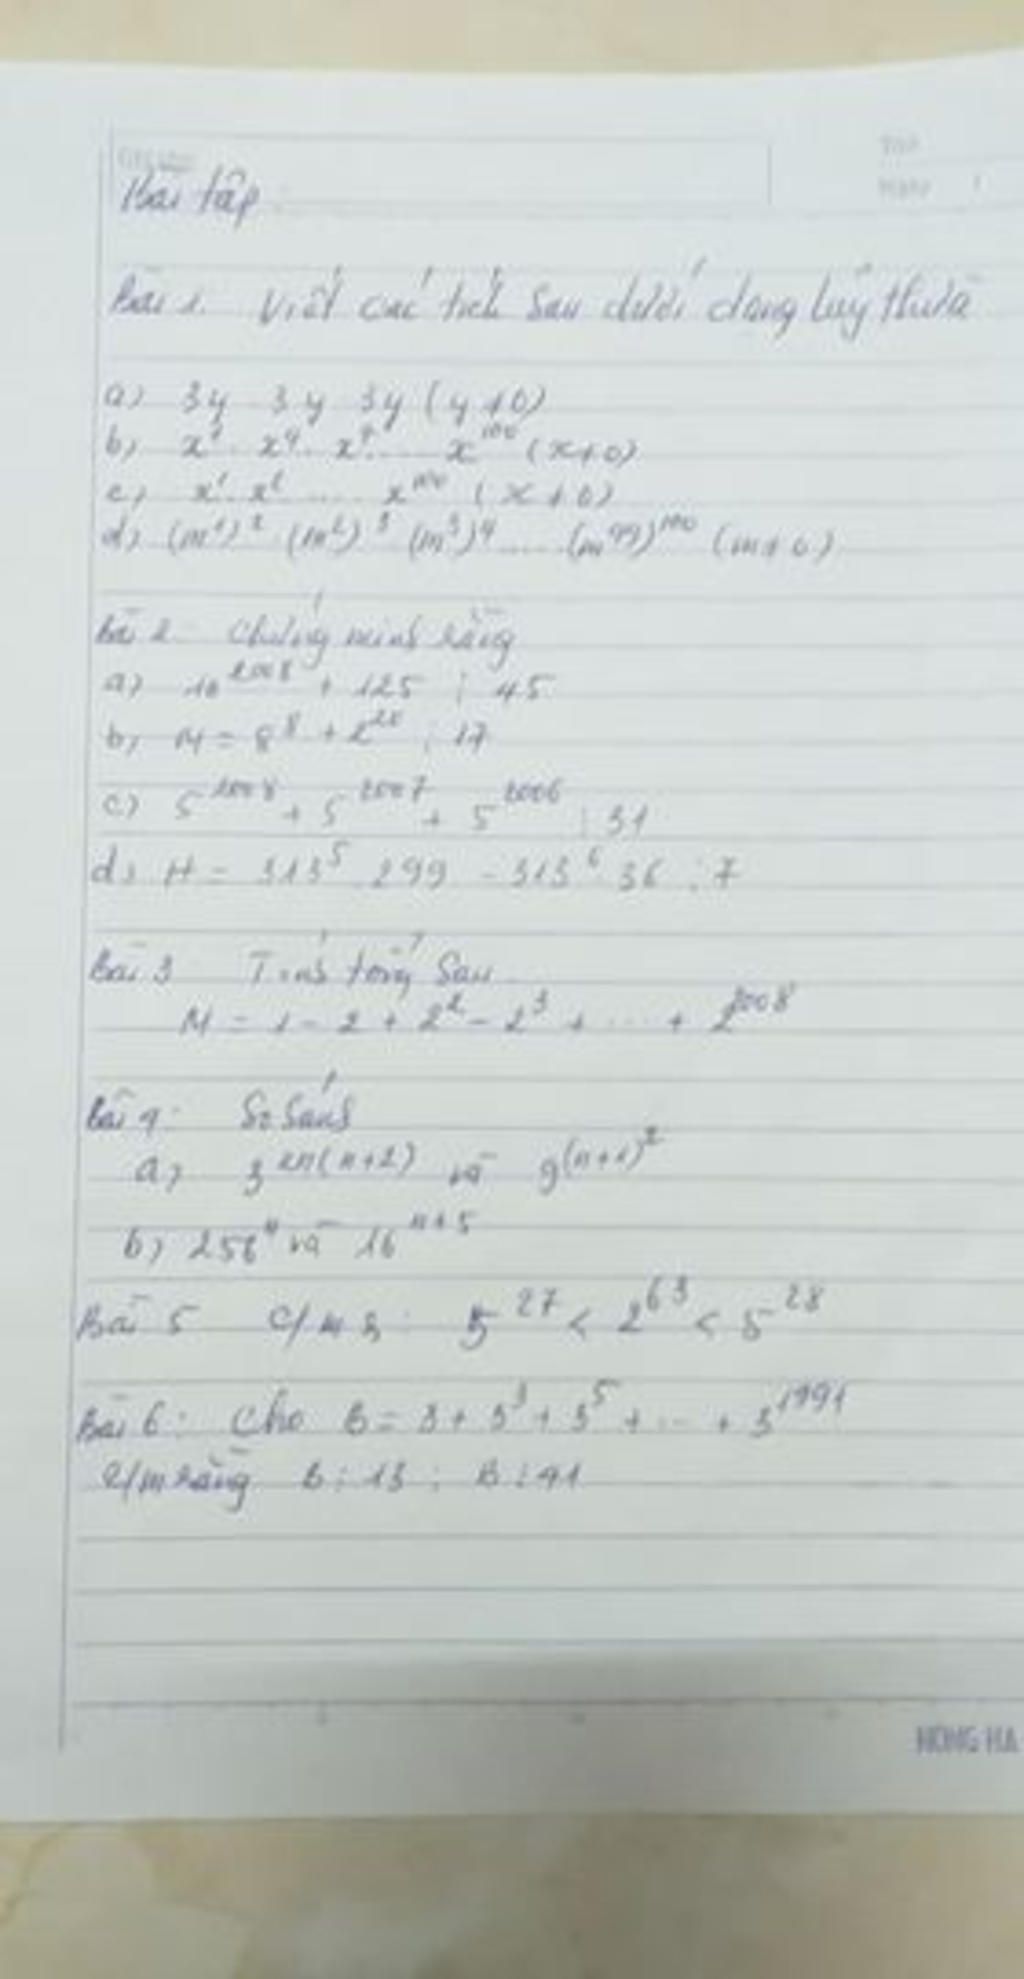 Bài tập
Bài 1. Viết các tích sau dưới dạng luỹ thừa
a) 3y 3y 3y (y≠0)
b) x¹. x⁴. x⁷. ... x¹⁰⁰ (x≠0)
c) x¹. x² .... x¹⁰⁰ (x≠0)
d) (m¹)² (m²)³ (m³)⁴ ..... (m⁹⁹)¹⁰⁰ (m≠0)
Bài 2 Chứng minh rằng
a) 10²⁰⁰⁸ + 125 ⋮ 45
b) M = 8⁸ + 2²⁰ ⋮ 17
c) 5²⁰⁰⁸ + 5²⁰⁰⁷ + 5²⁰⁰⁶ ⋮ 31
d) H = 313⁵ 299 - 313⁶ 36 ⋮ 7
Bài 3 Tính tổng sau
M = 1 - 2 + 2² - 2³ + ... + 2²⁰⁰⁸
Bài 4: So sánh
a) 3²ⁿ⁽ⁿ⁺²⁾ và 9⁽ⁿ⁺¹⁾²
b) 256ⁿ và 16ⁿ⁺⁵
Bài 5 C/m R: 5²⁷ < 2⁶³ < 5²⁸
Bài 6: Cho B = 3 + 3³ + 3⁵ + ... + 3¹⁹⁹¹
C/m rằng B ⋮ 13 ; B ⋮ 41
HONG HA